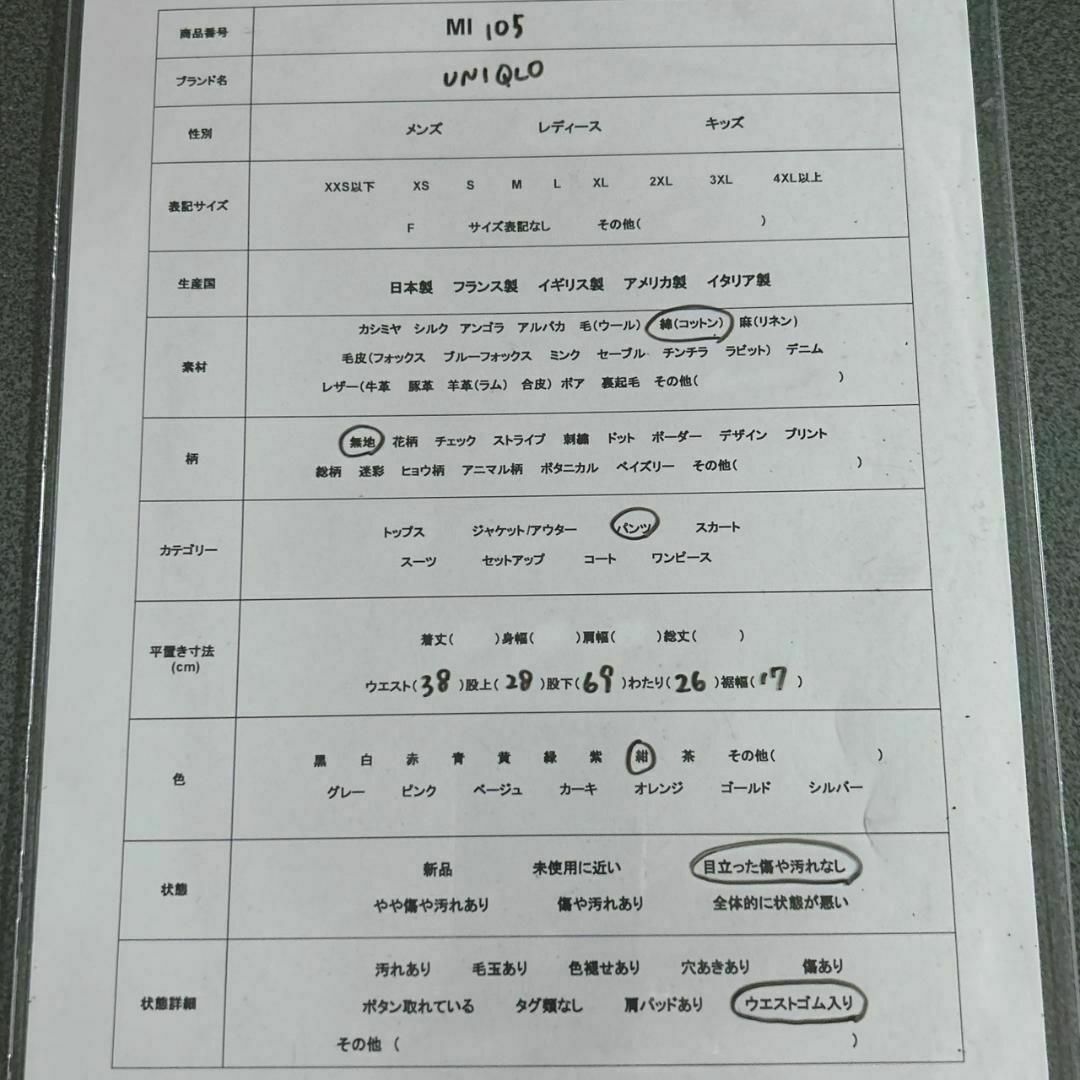 商品番号 MI 105
ブランド名 UNIQLO
性別 メンズ レディース キッズ
表記サイズ
XXS以下 XS S M L XL 2XL 3XL 4XL以上
F サイズ表記なし その他( )
生産国 日本製 フランス製 イギリス製 アメリカ製 イタリア製
素材
カシミヤ シルク アンゴラ アルパカ 毛(ウール) 綿(コットン) 麻(リネン)
毛皮(フォックス ブルーフォックス ミンク セーブル チンチラ ラビット) デニム
レザー(牛革 豚革 羊革(ラム) 合皮) ボア 裏起毛 その他( )
柄
無地 花柄 チェック ストライプ 刺繍 ドット ボーダー デザイン プリント
総柄 迷彩 ヒョウ柄 アニマル柄 ボタニカル ペイズリー その他( )
カテゴリー
トップス ジャケット/アウター パンツ スカート
スーツ セットアップ コート ワンピース
平置き寸法
(cm)
着丈( )身幅( )肩幅( )総丈( )
ウエスト(38)股上(28)股下(69)わたり(26)裾幅(17)
色
黒 白 赤 青 黄 緑 紫 紺 茶 その他( )
グレー ピンク ベージュ カーキ オレンジ ゴールド シルバー
状態
新品 未使用に近い 目立った傷や汚れなし
やや傷や汚れあり 傷や汚れあり 全体的に状態が悪い
状態詳細
汚れあり 毛玉あり 色褪せあり 穴あきあり 傷あり
ボタン取れている タグ類なし 肩パッドあり ウエストゴム入り
その他 ( )